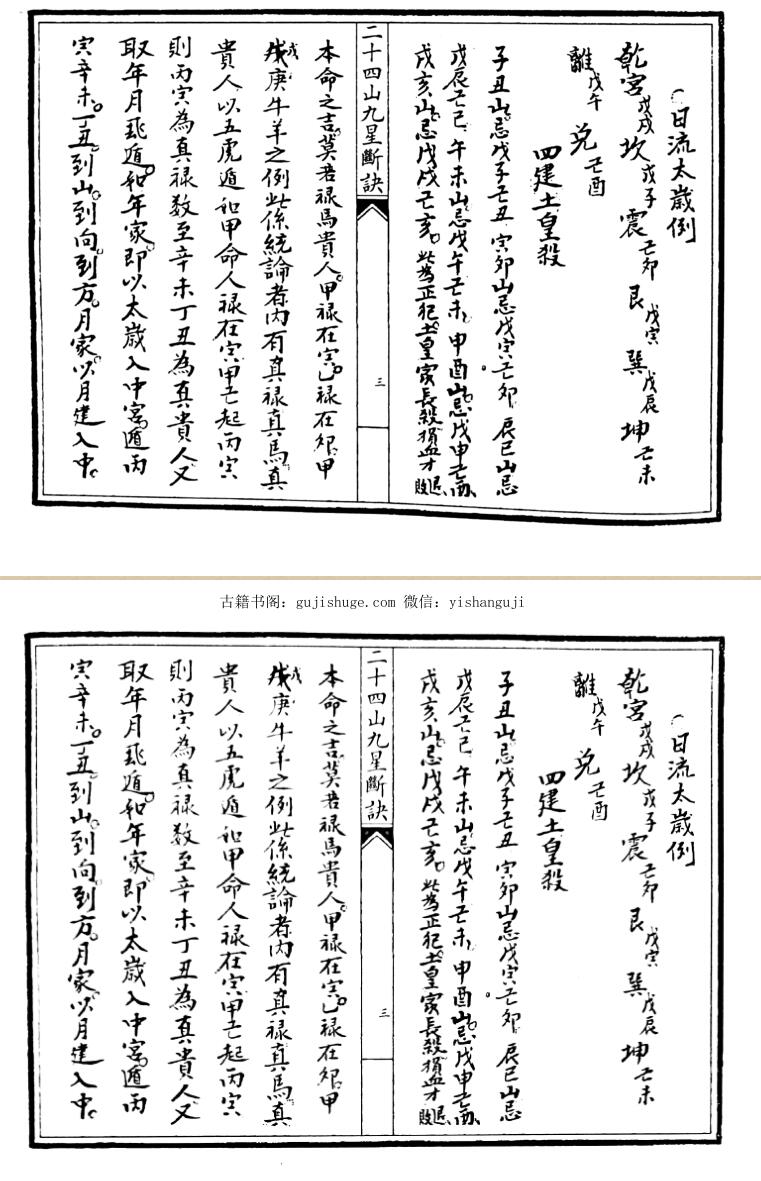 日流太歲例
乾宮戊戌 坎戊子 震己卯 艮戊寅 巽戊辰 坤己未
離戊午 兌己酉
四建土皇殺
子丑山忌戊子己丑 寅卯山忌戊寅己卯 辰巳山忌
戊辰己巳 午未山忌戊午己未 申酉山忌戊申己酉
戌亥山忌戊戌己亥 此為正犯土皇家長殺損血才退敗
二十四山九星斷訣
三
本命之吉莫若祿馬貴人甲祿在寅乙祿在卯甲
戊庚牛羊之例此係統論者內有真祿真馬真
貴人以五虎遁如甲命人祿在寅甲己起丙寅
則丙寅為真祿數至辛未丁丑為真貴人又
取年月飛遁如年家即以太歲入中宮遁丙
寅辛未丁丑到山到向到方月家以月建入中
古籍书阁：gujishuge.com 微信：yishanguji
日流太歲例
乾宮戊戌 坎戊子 震己卯 艮戊寅 巽戊辰 坤己未
離戊午 兌己酉
四建土皇殺
子丑山忌戊子己丑 寅卯山忌戊寅己卯 辰巳山忌
戊辰己巳 午未山忌戊午己未 申酉山忌戊申己酉
戌亥山忌戊戌己亥 此為正犯土皇家長殺損血才退敗
二十四山九星斷訣
三
本命之吉莫若祿馬貴人甲祿在寅乙祿在卯甲
戊庚牛羊之例此係統論者內有真祿真馬真
貴人以五虎遁如甲命人祿在寅甲己起丙寅
則丙寅為真祿數至辛未丁丑為真貴人又
取年月飛遁如年家即以太歲入中宮遁丙
寅辛未丁丑到山到向到方月家以月建入中